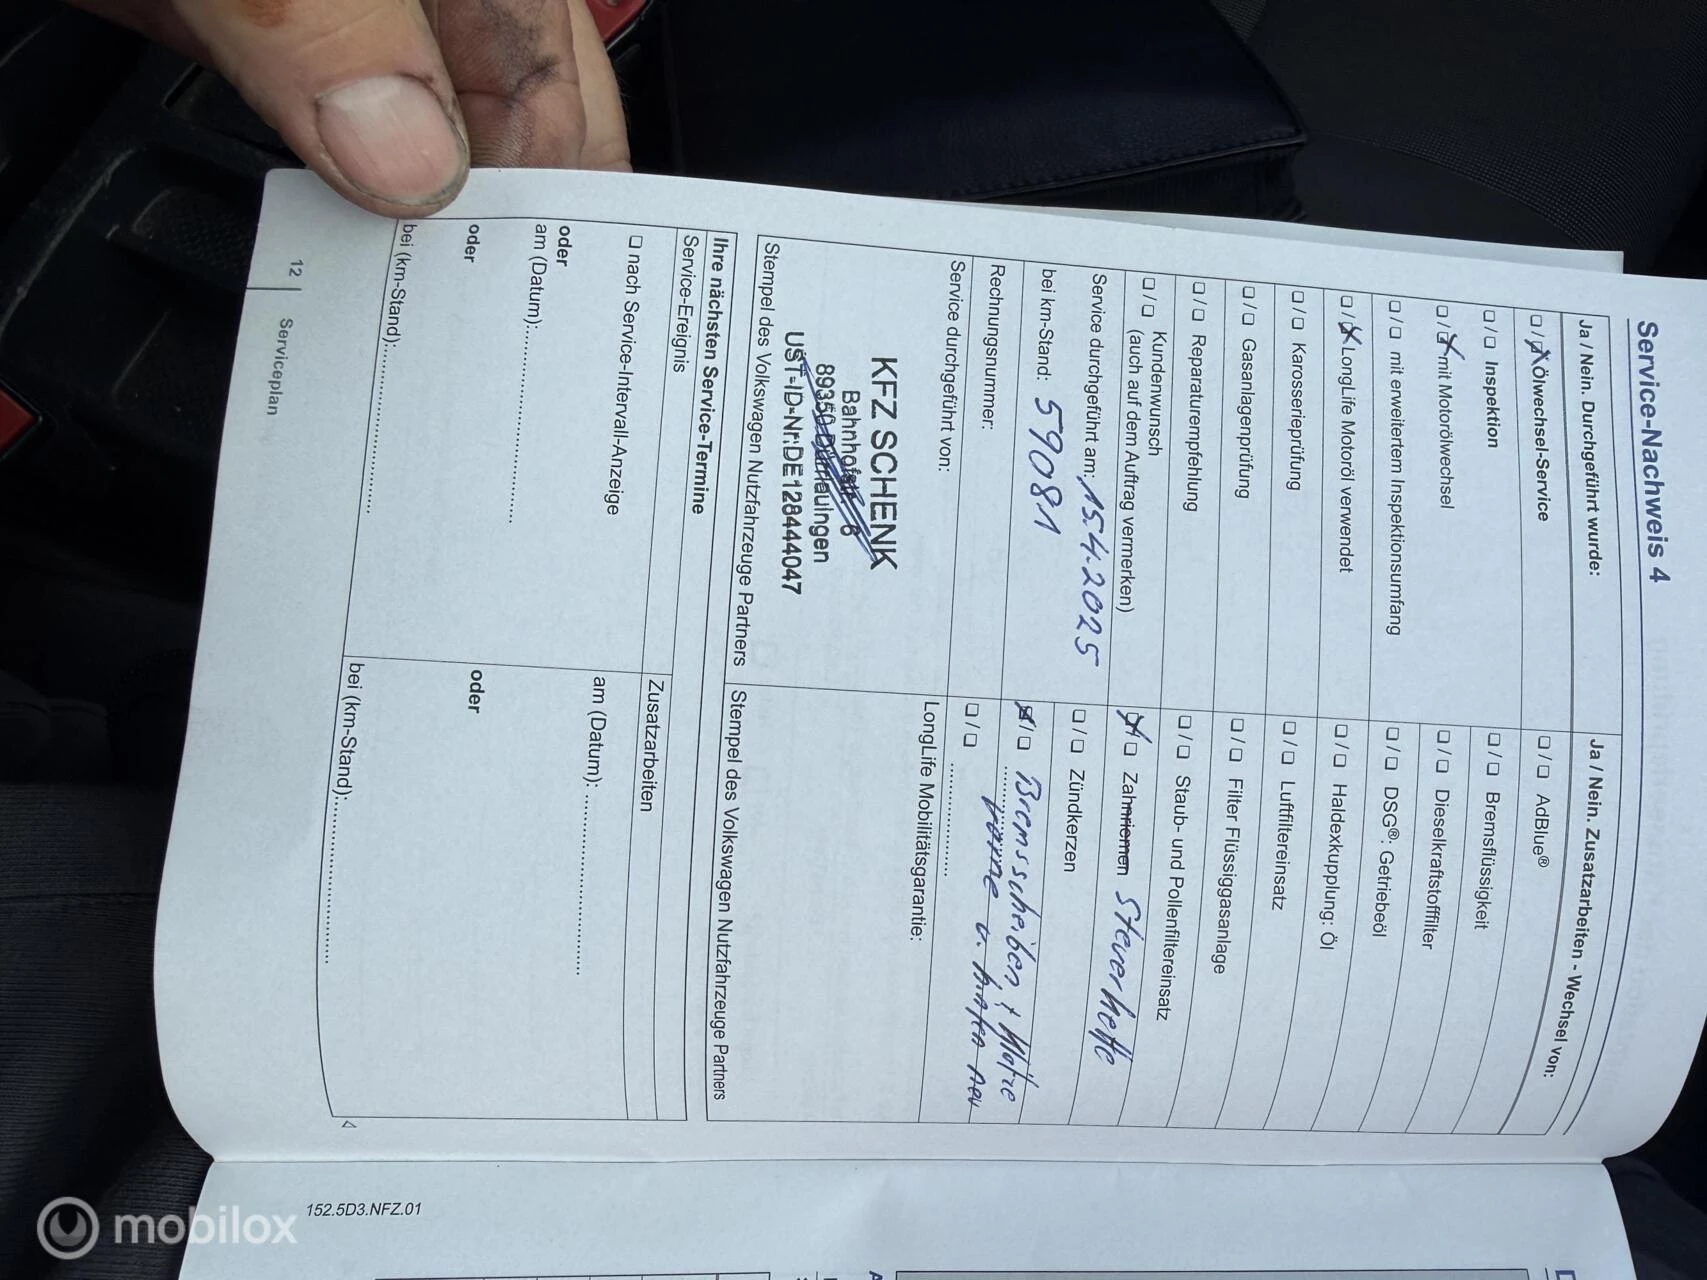 Service-Nachweis 4
Ja / Nein. Durchgeführt wurde:
❏ / ❏ Ölwechsel-Service
❏ / ❏ Inspektion
❏ / ❏ mit Motorölwechsel
❏ / ❏ mit erweitertem Inspektionsumfang
❏ / ❏ LongLife Motoröl verwendet
❏ / ❏ Karosserieprüfung
❏ / ❏ Gasanlagenprüfung
❏ / ❏ Reparaturempfehlung
❏ / ❏ Kundenwunsch
(auch auf dem Auftrag vermerken)
Service durchgeführt am: 15.4.2025
bei km-Stand: 59081
Rechnungsnummer:
Service durchgeführt von:
KFZ SCHENK
Bahnhofstr. 8
89350 Dürrlauingen
UST-ID-Nr.DE128444047
Stempel des Volkswagen Nutzfahrzeuge Partners
Ja / Nein. Zusatzarbeiten - Wechsel von:
❏ / ❏ AdBlue®
❏ / ❏ Bremsflüssigkeit
❏ / ❏ Dieselkraftstofffilter
❏ / ❏ DSG®: Getriebeöl
❏ / ❏ Haldexkupplung: Öl
❏ / ❏ Luftfiltereinsatz
❏ / ❏ Filter Flüssiggasanlage
❏ / ❏ Staub- und Pollenfiltereinsatz
❏ / ❏ Zahnriemen Steuerkette
❏ / ❏ Zündkerzen
❏ / ❏ Bremsscheiben + Klötze
❏ / ❏ vorne u. hinten neu
LongLife Mobilitätsgarantie:
Stempel des Volkswagen Nutzfahrzeuge Partners
Ihre nächsten Service-Termine
Service-Ereignis
❏ nach Service-Intervall-Anzeige
oder
am (Datum):
oder
bei (km-Stand):
Zusatzarbeiten
am (Datum):
oder
bei (km-Stand):
12 Serviceplan
152.5D3.NFZ.01
mobilox